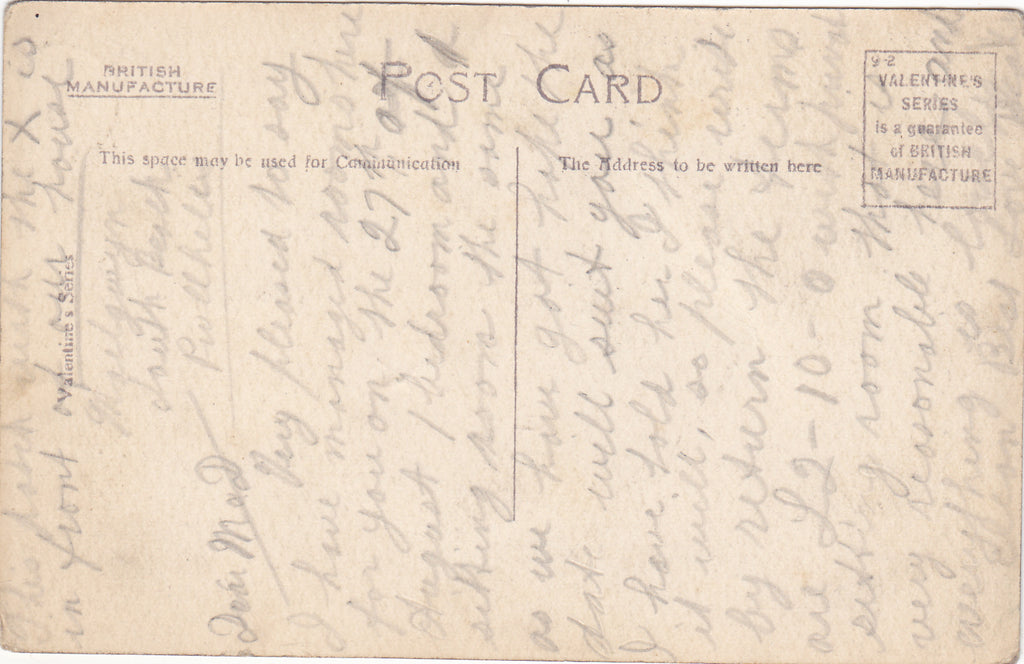 BRITISH
MANUFACTURE
POST CARD
9-2
VALENTINE'S
SERIES
is a guarantee
of BRITISH
MANUFACTURE
This space may be used for Communication
The Address to be written here
Valentine's Series
with the X is
in front of our house
South Beach
Pwllheli
Dear Mad
Very pleased to say
I have managed rooms for
for you on the 27th of
August 1 bedroom and
sitting room the same
as we have got here the
date will suit you as
I have told her I think
it will, so please write
by return the terms
are £2-10-0 and
sitting room that is
very reasonable for
everything is